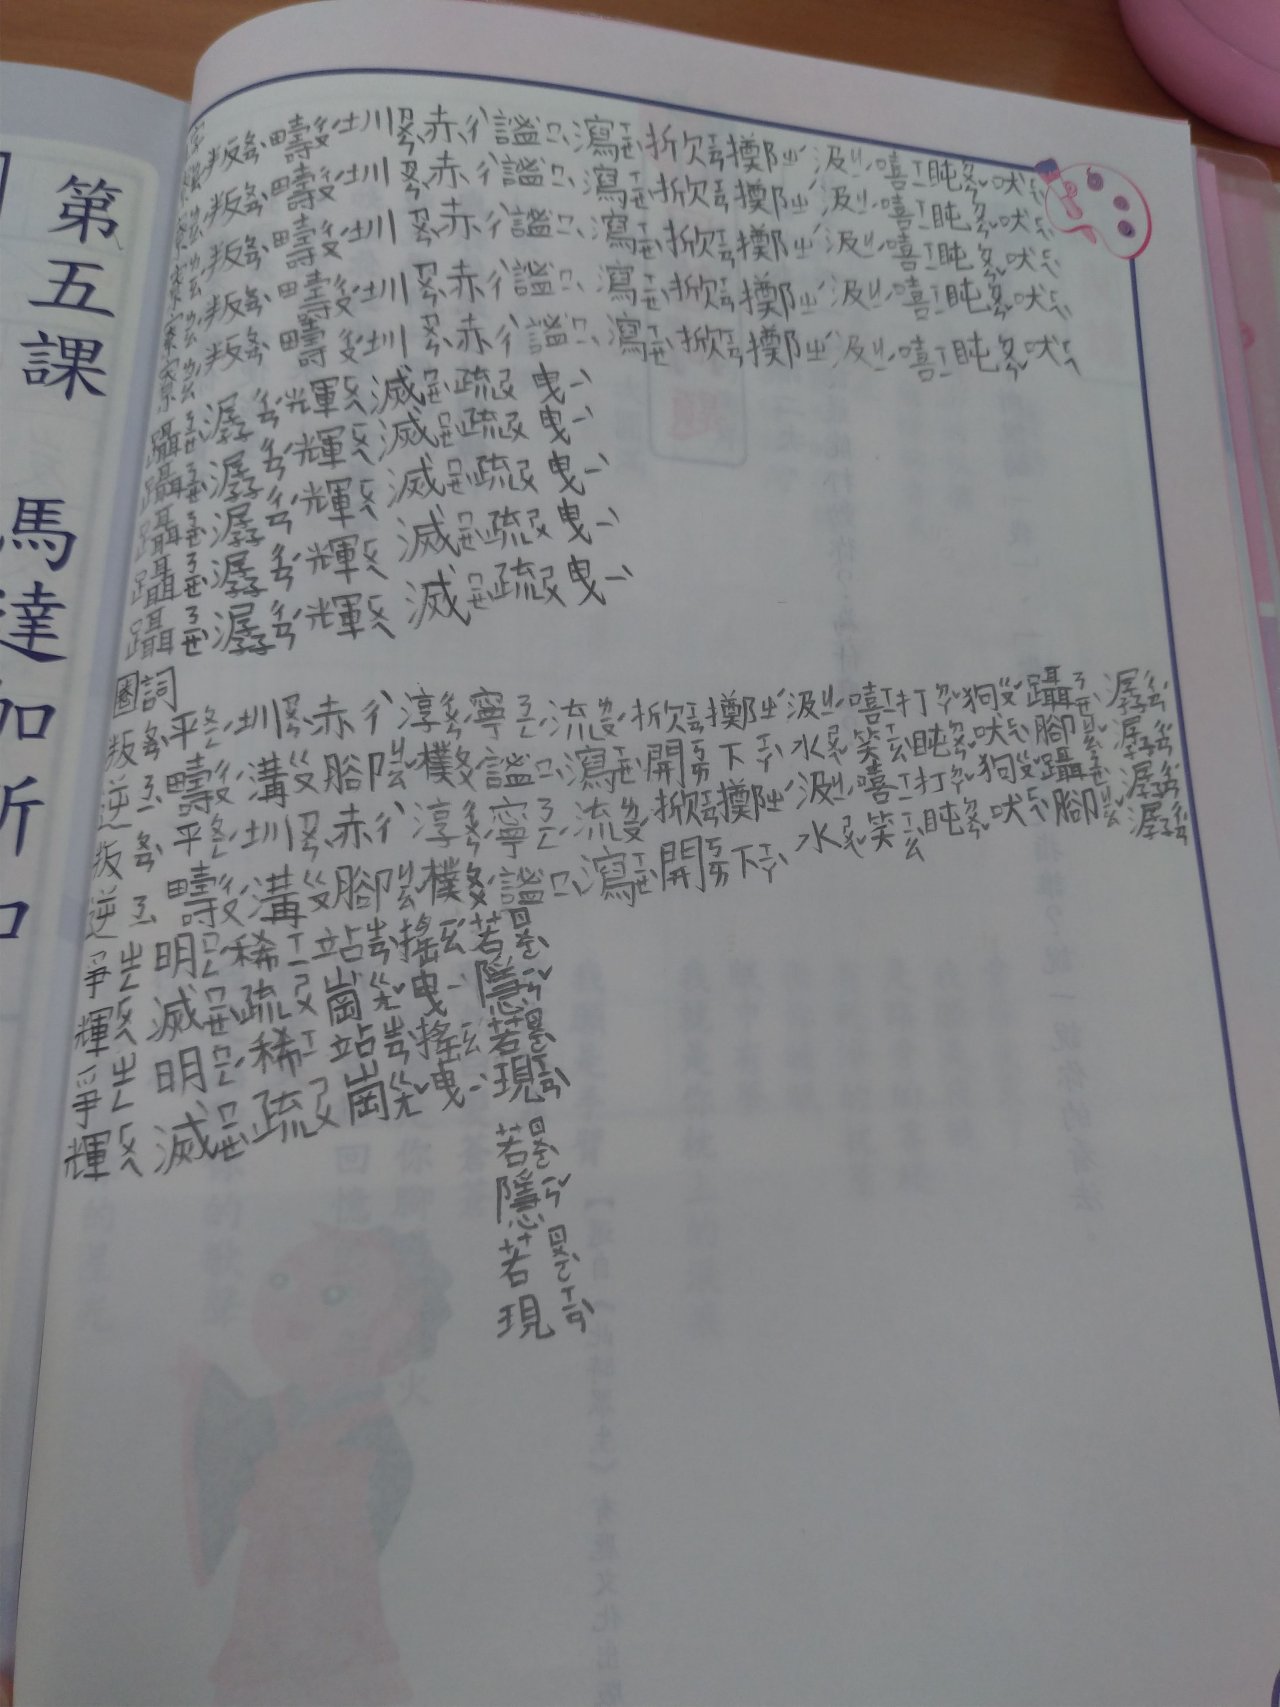 第五課
馬達加斯加
叛ㄆㄢˋ疇ㄔㄡˊ圳ㄗㄨㄣˋ赤ㄔˋ謐ㄇㄧˋ瀉ㄒㄧㄝˋ掀ㄒㄧㄢ擲ㄓˊ汲ㄐㄧˊ嘻ㄒㄧ盹ㄉㄨㄣˇ吠ㄈㄟˋ
叛ㄆㄢˋ疇ㄔㄡˊ圳ㄗㄨㄣˋ赤ㄔˋ謐ㄇㄧˋ瀉ㄒㄧㄝˋ掀ㄒㄧㄢ擲ㄓˊ汲ㄐㄧˊ嘻ㄒㄧ盹ㄉㄨㄣˇ吠ㄈㄟˋ
叛ㄆㄢˋ疇ㄔㄡˊ圳ㄗㄨㄣˋ赤ㄔˋ謐ㄇㄧˋ瀉ㄒㄧㄝˋ掀ㄒㄧㄢ擲ㄓˊ汲ㄐㄧˊ嘻ㄒㄧ盹ㄉㄨㄣˇ吠ㄈㄟˋ
叛ㄆㄢˋ疇ㄔㄡˊ圳ㄗㄨㄣˋ赤ㄔˋ謐ㄇㄧˋ瀉ㄒㄧㄝˋ掀ㄒㄧㄢ擲ㄓˊ汲ㄐㄧˊ嘻ㄒㄧ盹ㄉㄨㄣˇ吠ㄈㄟˋ
叛ㄆㄢˋ疇ㄔㄡˊ圳ㄗㄨㄣˋ赤ㄔˋ謐ㄇㄧˋ瀉ㄒㄧㄝˋ掀ㄒㄧㄢ擲ㄓˊ汲ㄐㄧˊ嘻ㄒㄧ盹ㄉㄨㄣˇ吠ㄈㄟˋ
躡ㄋㄧㄝˋ潺ㄔㄢˊ輝ㄏㄨㄟ滅ㄇㄧㄝˋ疏ㄕㄨ曳ㄧˋ
躡ㄋㄧㄝˋ潺ㄔㄢˊ輝ㄏㄨㄟ滅ㄇㄧㄝˋ疏ㄕㄨ曳ㄧˋ
躡ㄋㄧㄝˋ潺ㄔㄢˊ輝ㄏㄨㄟ滅ㄇㄧㄝˋ疏ㄕㄨ曳ㄧˋ
躡ㄋㄧㄝˋ潺ㄔㄢˊ輝ㄏㄨㄟ滅ㄇㄧㄝˋ疏ㄕㄨ曳ㄧˋ
躡ㄋㄧㄝˋ潺ㄔㄢˊ輝ㄏㄨㄟ滅ㄇㄧㄝˋ疏ㄕㄨ曳ㄧˋ
圈詞
叛ㄆㄢˋ平ㄆㄧㄥˊ圳ㄗㄨㄣˋ赤ㄔˋ淳ㄔㄨㄣˊ寧ㄋㄧㄥˊ流ㄌㄧㄡˊ掀ㄒㄧㄢ擲ㄓˊ汲ㄐㄧˊ嘻ㄒㄧ打ㄉㄚˇ狗ㄍㄡˇ躡ㄋㄧㄝˋ潺ㄔㄢˊ
逆ㄋㄧˋ疇ㄔㄡˊ溝ㄍㄡ腳ㄐㄧㄠˇ樸ㄆㄨˊ謐ㄇㄧˋ瀉ㄒㄧㄝˋ開ㄎㄞ下ㄒㄧㄚˋ水ㄕㄨㄟˇ笑ㄒㄧㄠˋ盹ㄉㄨㄣˇ吠ㄈㄟˋ腳ㄐㄧㄠˇ潺ㄔㄢˊ
叛ㄆㄢˋ平ㄆㄧㄥˊ圳ㄗㄨㄣˋ赤ㄔˋ淳ㄔㄨㄣˊ寧ㄋㄧㄥˊ流ㄌㄧㄡˊ掀ㄒㄧㄢ擲ㄓˊ汲ㄐㄧˊ嘻ㄒㄧ打ㄉㄚˇ狗ㄍㄡˇ躡ㄋㄧㄝˋ潺ㄔㄢˊ
逆ㄋㄧˋ疇ㄔㄡˊ溝ㄍㄡ腳ㄐㄧㄠˇ樸ㄆㄨˊ謐ㄇㄧˋ瀉ㄒㄧㄝˋ開ㄎㄞ下ㄒㄧㄚˋ水ㄕㄨㄟˇ笑ㄒㄧㄠˋ盹ㄉㄨㄣˇ吠ㄈㄟˋ腳ㄐㄧㄠˇ潺ㄔㄢˊ
爭ㄓㄥ明ㄇㄧㄥˊ稀ㄒㄧ站ㄓㄢˋ搖ㄧㄠˊ若ㄖㄨㄛˋ
輝ㄏㄨㄟ滅ㄇㄧㄝˋ疏ㄕㄨ崗ㄍㄤˇ曳ㄧˋ隱ㄧㄣˇ
爭ㄓㄥ明ㄇㄧㄥˊ稀ㄒㄧ站ㄓㄢˋ搖ㄧㄠˊ若ㄖㄨㄛˋ
輝ㄏㄨㄟ滅ㄇㄧㄝˋ疏ㄕㄨ崗ㄍㄤˇ曳ㄧˋ現ㄒㄧㄢˋ
若ㄖㄨㄛˋ
隱ㄧㄣˇ
若ㄖㄨㄛˋ
現ㄒㄧㄢˋ